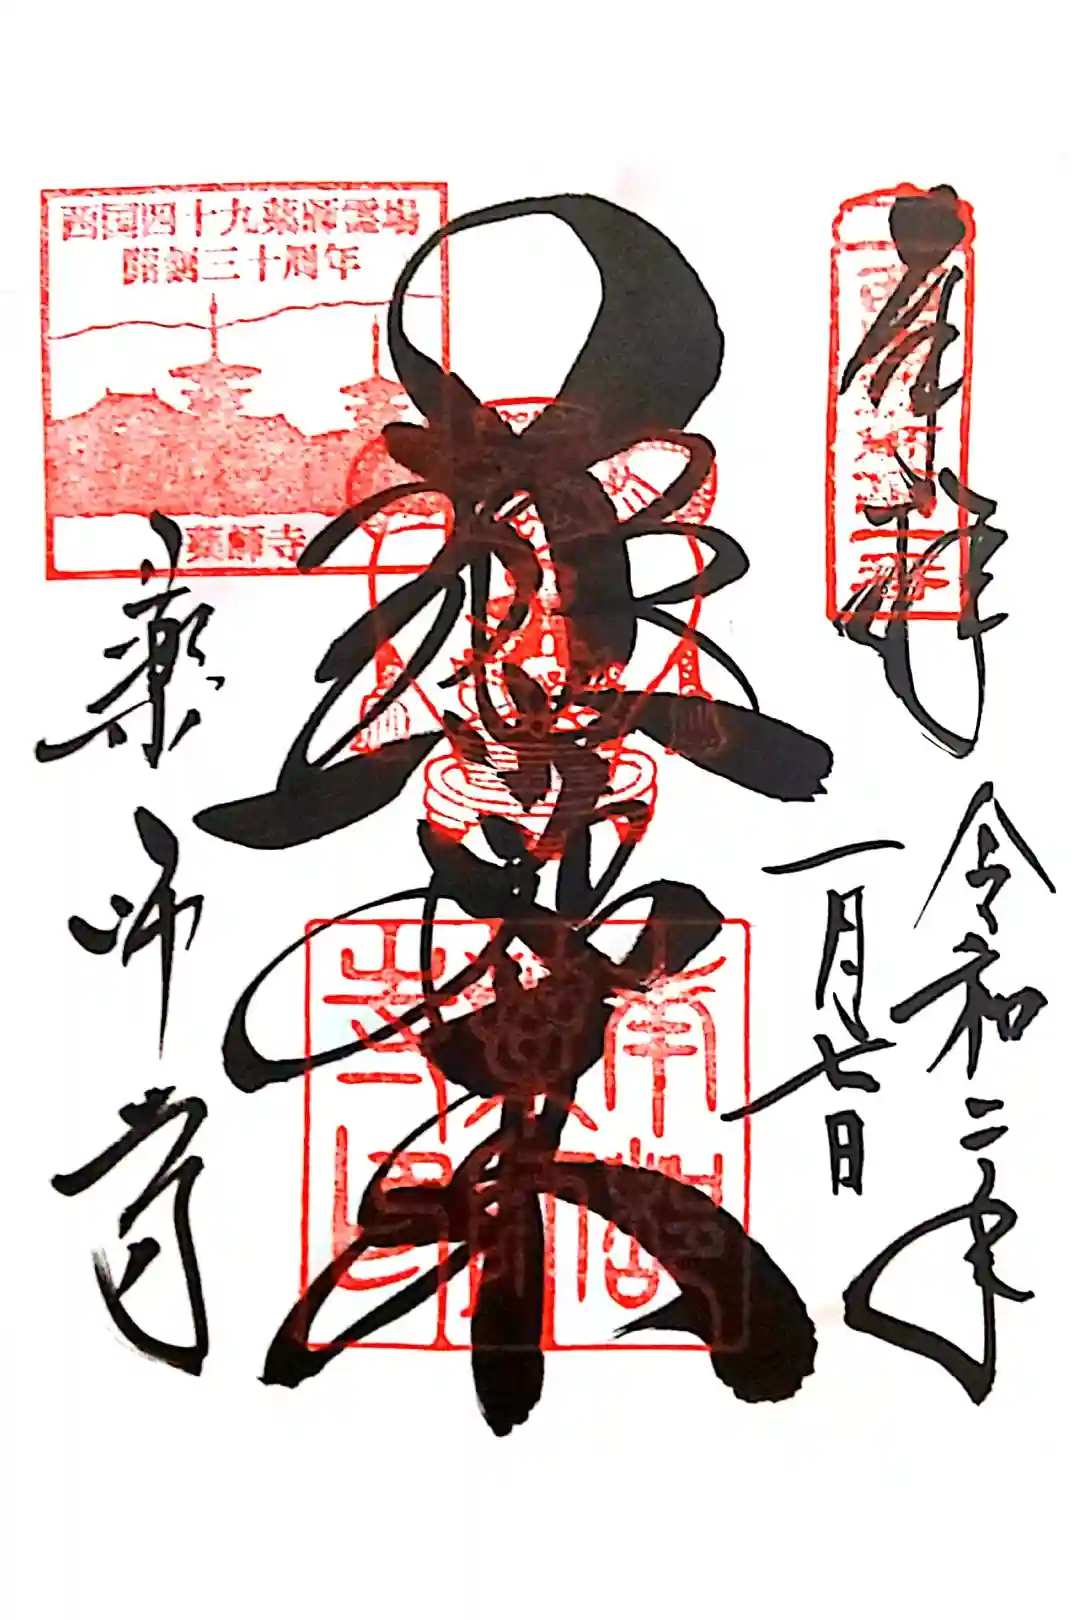 奉拝
令和二年
一月七日
薬師如来
西国四十九薬師霊場
開創三十周年
薬師寺
薬師寺